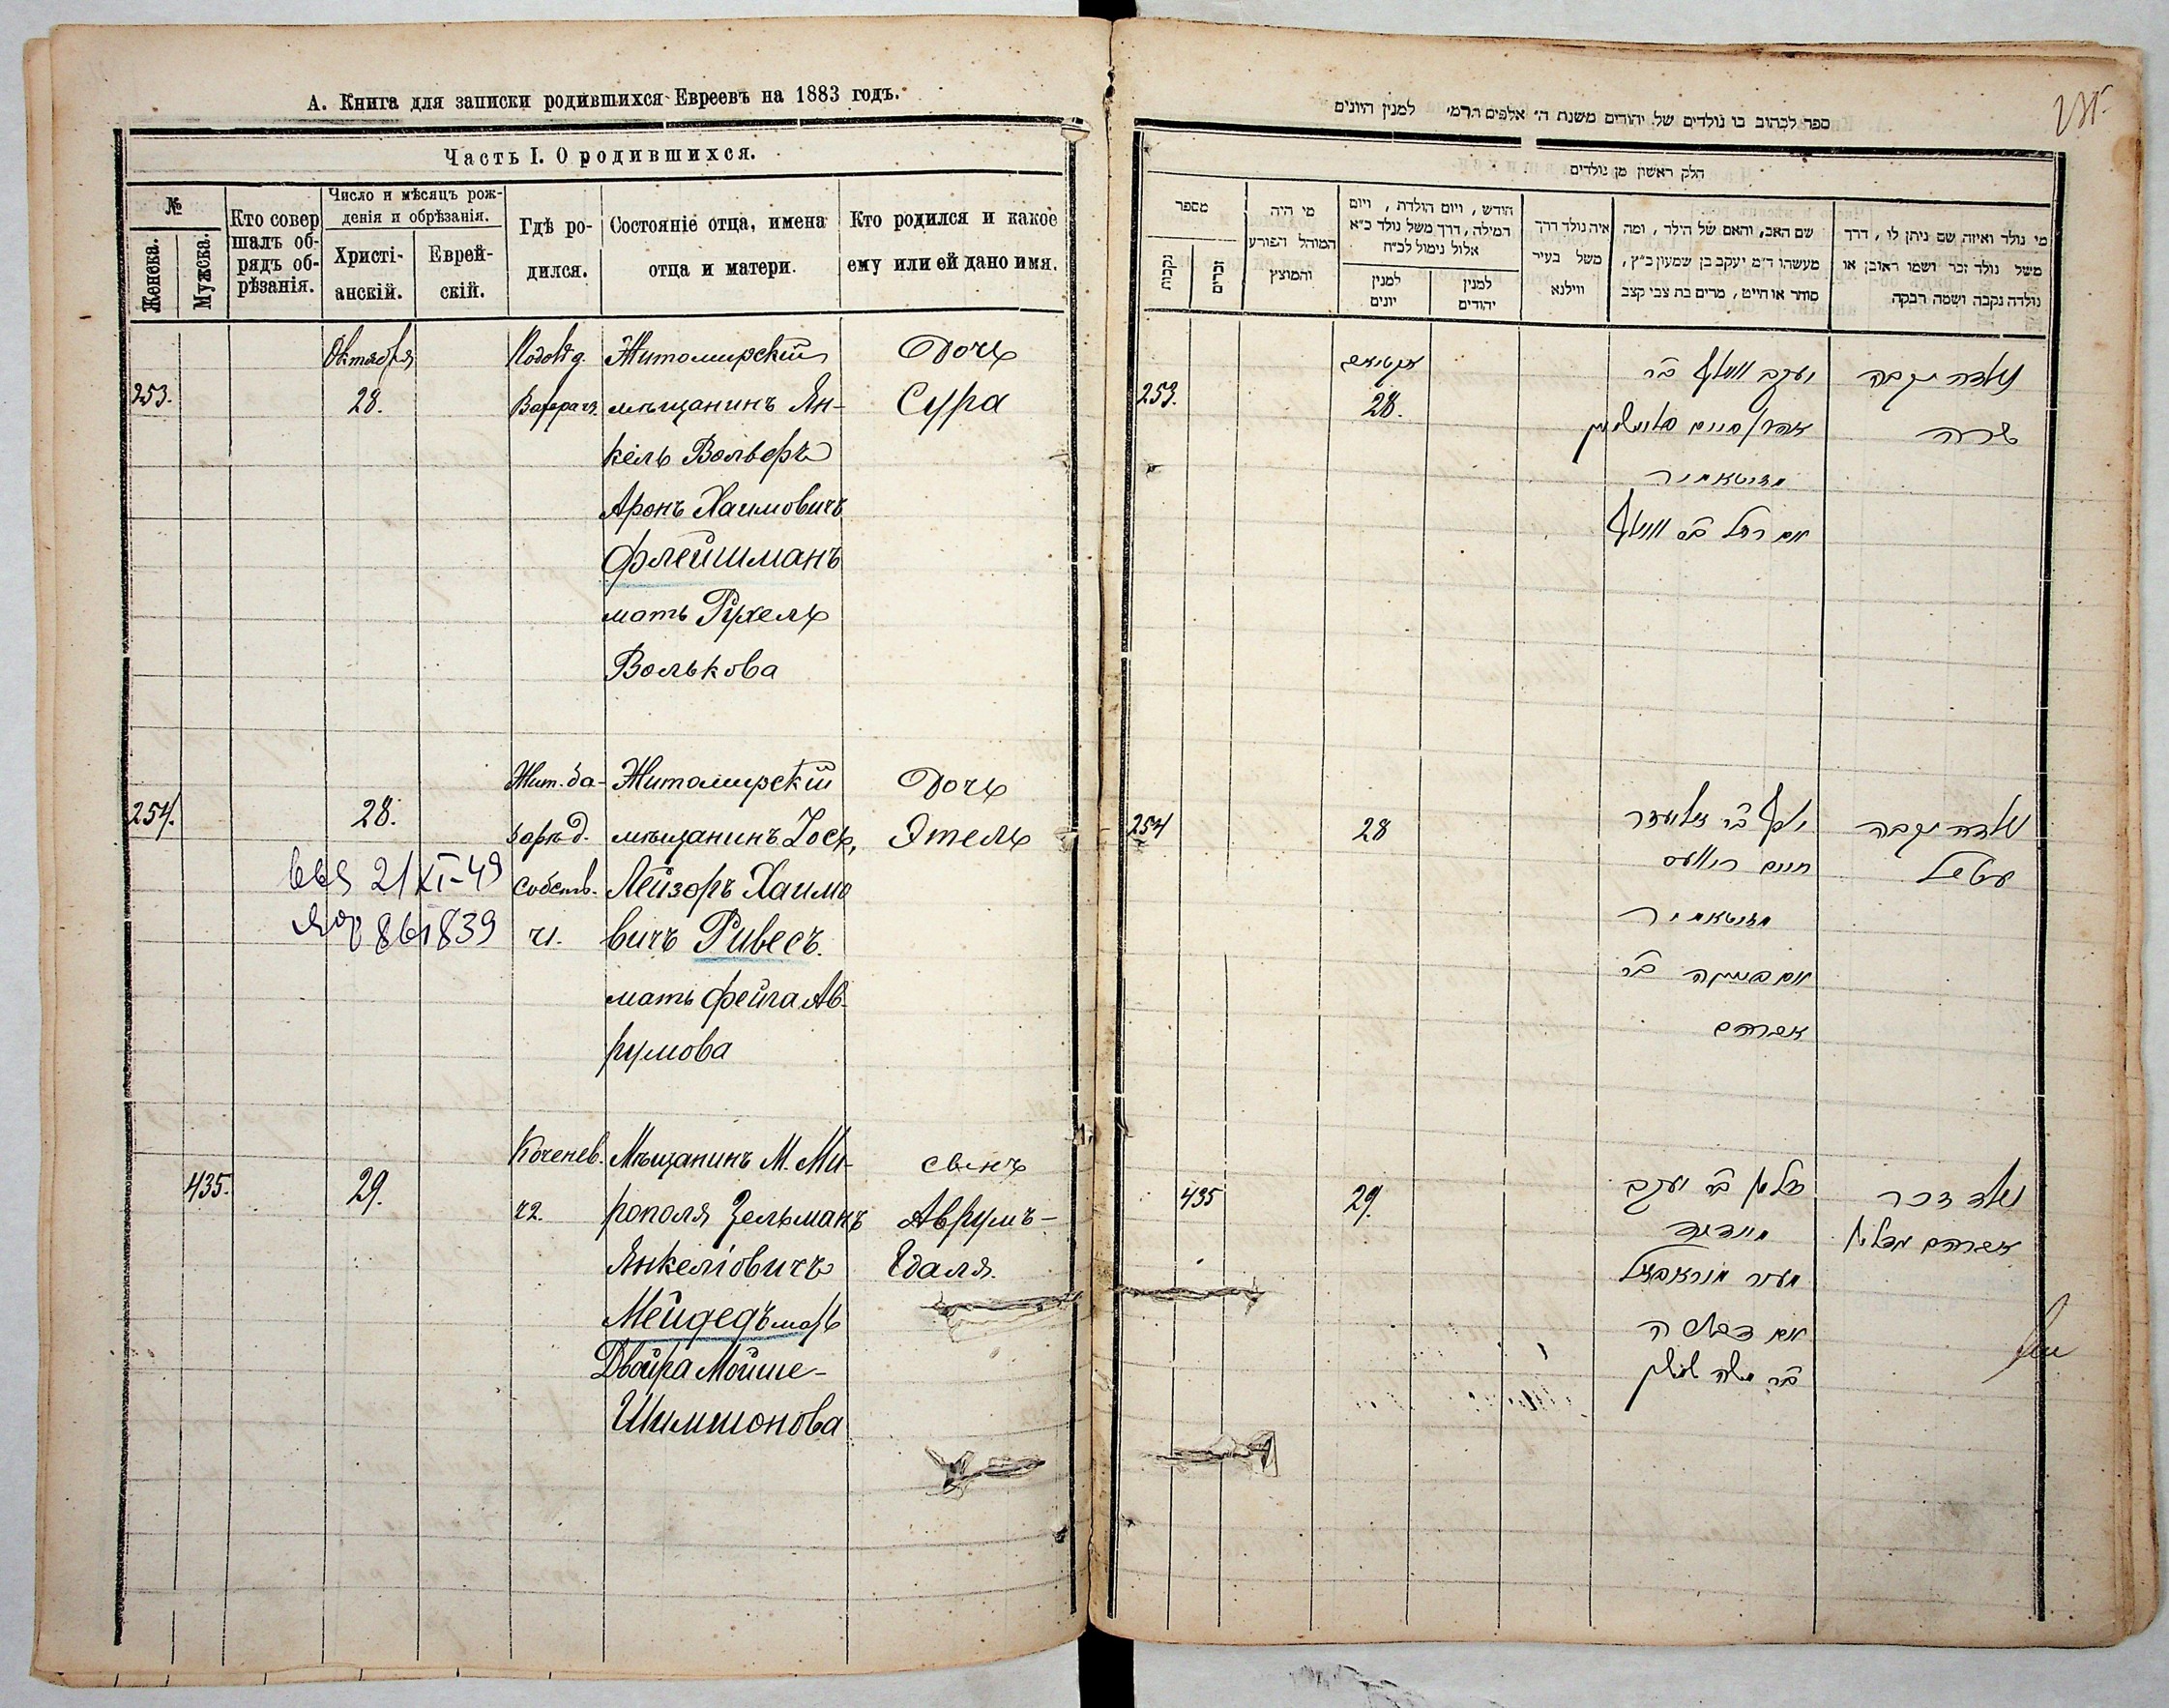 А. Книга для записки родившихся Евреевъ на 1883 годъ.
Часть I. О родившихся.
№
Женска.
Мужска.
Кто совер
шалъ об-
рядъ об-
рѣзанія.
Число и мѣсяцъ рож-
денія и обрѣзанія.
Христі-
анскій.
Еврей-
скій.
Гдѣ ро-
дился.
Состояніе отца, имена
отца и матери.
Кто родился и какое
ему или ей дано имя.
Октября
253.
28.
Житомирскій
мѣщанинъ Ян-
кель Вольфъ
Аронъ Хаимовичъ
Флейшманъ
мать Рухель
Волькова
Дочь
Сура
254.
28.
Жит. ба-
заръ д.
собств.
ч1.
Житомирскій
мѣщанинъ Іос.,
Лейзоръ Хаимо
вичъ Ривесъ.
мать Фейга Ав-
румова
Дочь
Этель
21 XI-49
861839
435.
29.
Коченев.
ч2.
Мѣщанинъ М. Ми-
рополя Зельманъ
Янкеліовичъ
Мейдедъ мать
Двойра Мойше-
Шимшонова
сынъ
Аврумъ-
Едаля.
ספר לכתוב בו נולדים של יהודים משנת ה' אלפים תרמ' למנין היונים
חלק ראשון מן נולדים
מספר
נקבות
זכרים
מי היה
המוהל הפורע
והמוצץ
חודש, ויום הולדת, ויום
המילה, דרך משל נולד כ״א
אלול נימול לכ״ח
למנין
יונים
למנין
יהודים
איה נולד דרך
משל בעיר
ווילנא
שם האב, והאם של הילד, ומה
מעשהו ד״מ יעקב בן שמעון כ״ץ,
סוחר או חייט, מרים בת צבי קצב
מי נולד ואיזה שם ניתן לו, דרך
משל נולד זכר ושמו ראובן או
נולדה נקבה ושמה רבקה
253.
28.
יעקב וואלף בר
זיטאמיר
אם רחל בר וואלף
נולדה נקבה
שרה
254
28
חיים ריוועס
זיטאמיר
אברהם
נולדה נקבה
עטיל
435
29.
זלמן בר יעקב
מיידעד
נולד זכר